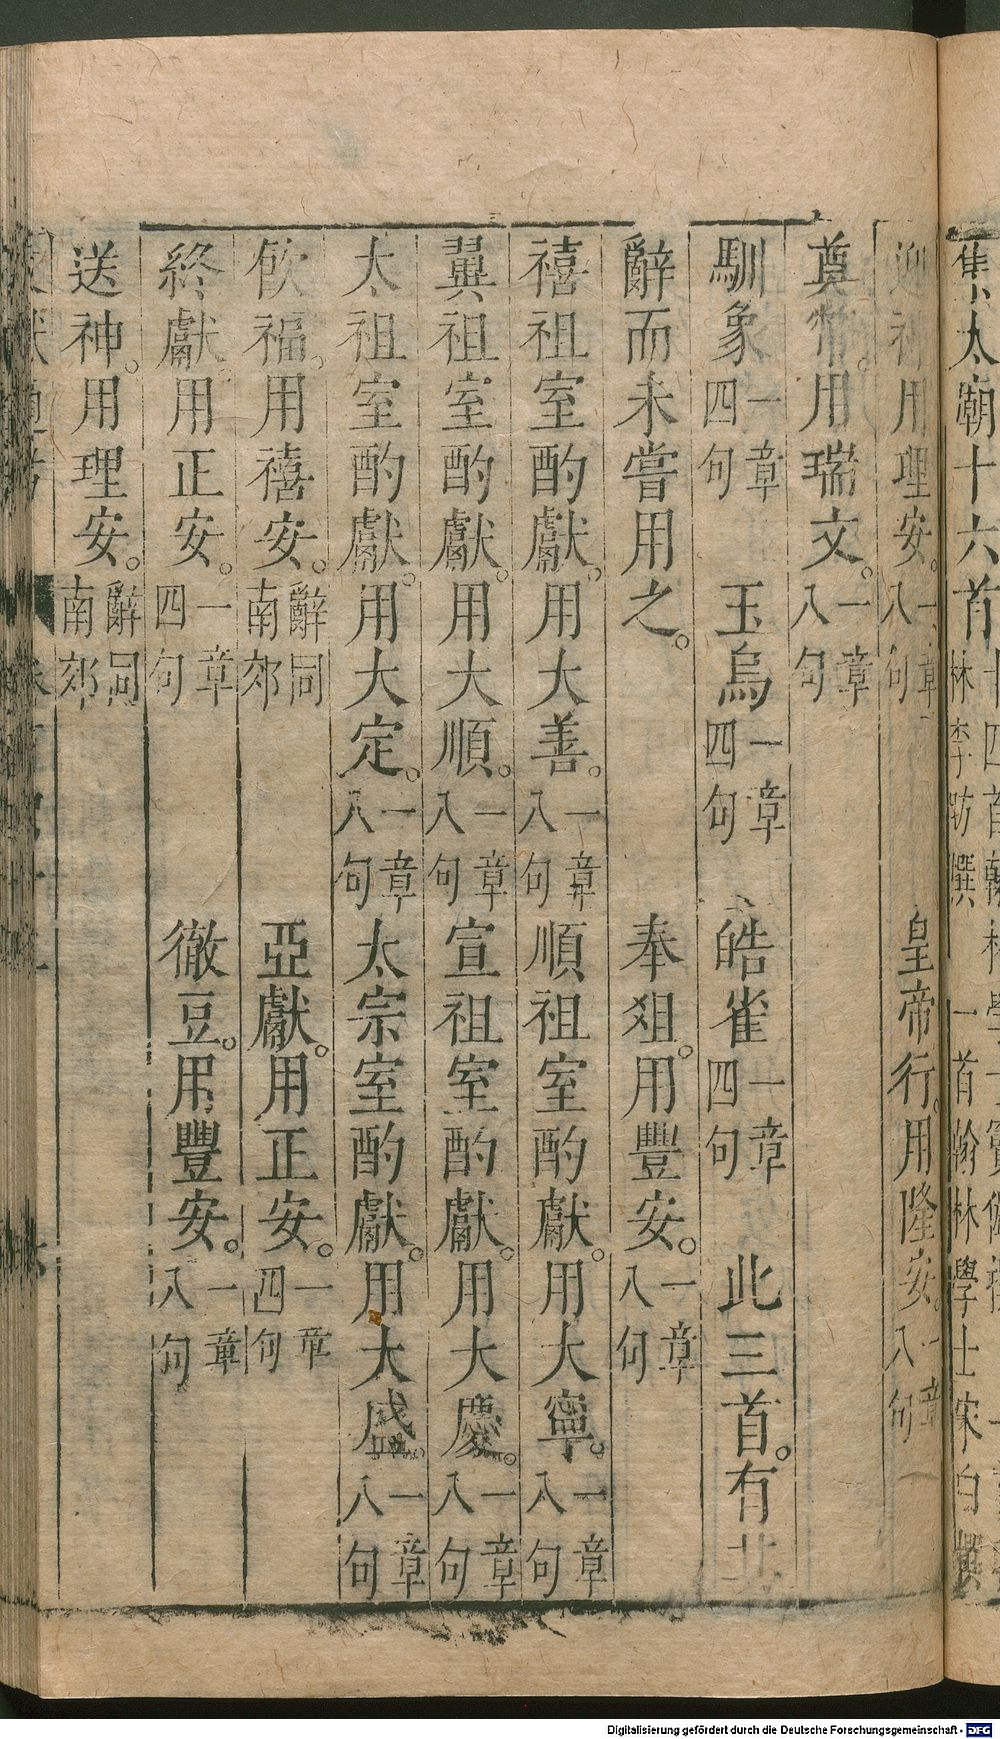 太廟十六首
迎神用理安。一章八句 皇帝行。用隆安。一章八句
奠幣。用瑞文。一章八句
馴象一章四句 玉烏一章四句 皓雀一章四句 此三首。有
辭而未嘗用之。 奉俎。用豐安。一章八句
禧祖室酌獻。用大善。一章八句 順祖室酌獻。用大寧。一章八句
翼祖室酌獻。用大順。一章八句 宣祖室酌獻。用大慶。一章八句
太祖室酌獻。用大定。一章八句 太宗室酌獻。用大盛。一章八句
飲福。用禧安。辭同南郊 亞獻。用正安。一章四句
終獻用正安。一章四句 徹豆。用豐安。一章八句
送神。用理安。辭同南郊
Digitalisierung gefördert durch die Deutsche Forschungsgemeinschaft - DFG